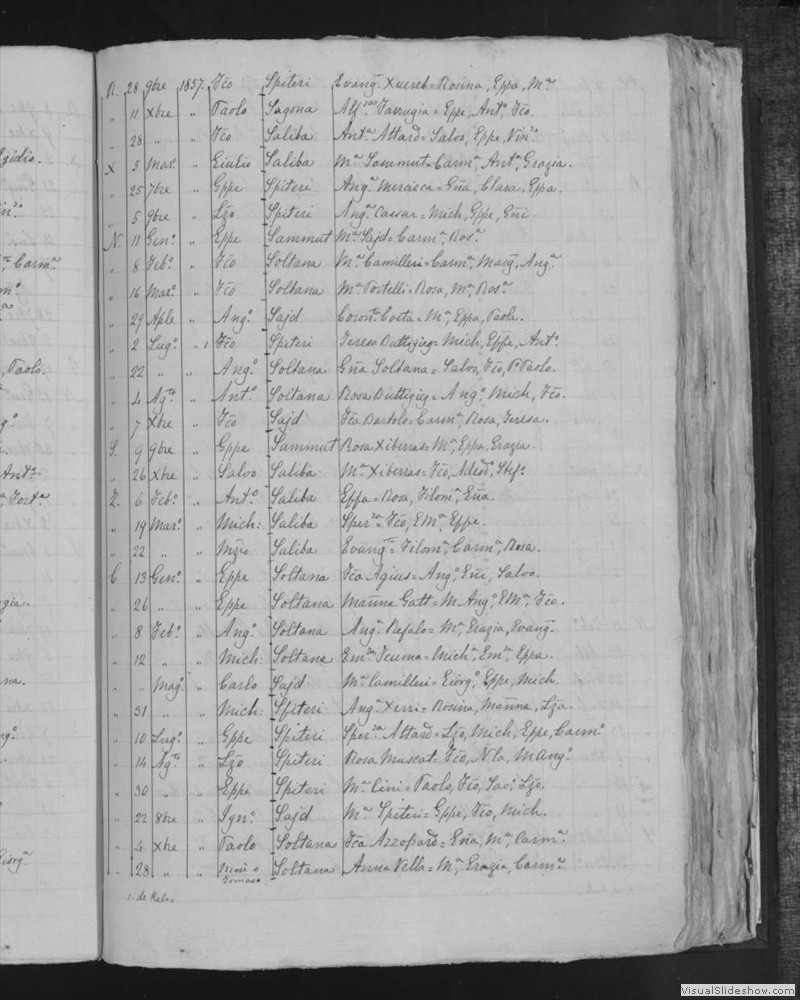 Egidio.
Carmª
Paolo.
Antª
R. 28 9bre 1857 Fcõ Spiteri Evangª Xuereb = Rosina, Eppa, Mª
„ 11 Xbre „ Paolo Sagona Farrugia = Eppe, Antº, Fcõ.
„ 28 „ „ Fcõ Saliba Antª Attard = Salvo, Eppe,
X 5 Marº „ Giulio Saliba Mª Sammut = Carmª, Antª, Grazia.
„ 25 7bre „ Gppe Spiteri Angª Mercieca = Gña, Clara, Eppa.
„ 5 9bre „ Lzõ Spiteri Angª Cassar = Mich, Gppe, Gni.
N. 11 Genº „ Eppe Sammut Mª Sajd = Carmª, Rosª
„ 8 Febº „ Fcõ Soltana Mª Camilleri = Carmª, Margª, Angª
„ 16 Marº „ Fcõ Soltana Mª Portelli = Rosa, Mª, Rosª
„ 29 Aple „ Angº Sajd Coronª Costa = Mª, Eppa, Paolo.
„ 2 Lugº „ Fcõ Spiteri Teresa Buttigieg = Mich, Eppe, Antº
„ 22 „ „ Angº Soltana Gña Soltana = Salvo, Fcõ, P. Paolo.
„ 4 Agto „ Antº Soltana Rosa Buttigieg = Angº, Mich, Fcõ.
„ 7 Xbre „ Fcõ Sajd Fca Bartolo = Carmª, Rosa, Teresa.
S. 9 9bre „ Gppe Sammut Rosa Xiberras = Mª, Eppa, Grazia.
„ 26 Xbre „ Salvo Saliba Mª Xiberras = Fcõ, Adeodº, Stefº
Z. 6 Febº „ Antº Saliba Effa = Rosa, Filomª, Gña.
„ 19 Marº „ Mich: Saliba Sperza = Fcõ, EMª, Eppe.
„ 22 „ „ Saliba Evangª = Filomª, Carmª, Rosa.
C. 13 Genº „ Eppe Soltana Fca Agius = Angº, Gni, Salvo.
„ 26 „ „ Eppe Soltana Gatt = M. Angº, EMª, Fcõ.
„ 8 Febº „ Angº Soltana Angª Refalo = Mª, Grazia, Evangª
„ 12 „ „ Mich: Soltana Emla = Michª, Emª, Eppa.
„ „ Magº „ Carlo Sajd Mª Camilleri = Giorgº, Eppe, Mich.
„ 31 „ „ Mich: Spiteri Angª Xerri = Rosina, Lza.
„ 10 Lugº „ Gppe Spiteri Sperza Attard = Lzõ, Mich, Eppe, Carmº
„ 14 Agto „ Lzõ Spiteri Rosa Muscat = Fcõ, Nla, M Angº
„ 30 „ „ Eppe Spiteri Mª Cini = Paolo, Fcõ, Lzõ.
„ 22 8bre „ Ignº Sajd Mª Spiteri = Gppe, Fcõ, Mich.
„ 4 Xbre „ Paolo Soltana Fca Azzopard = Gña, Mª, Carmª
„ 28 „ „ Tomaso Soltana Anna Vella = Mª, Grazia, Carmª
VisualSlideshow.com